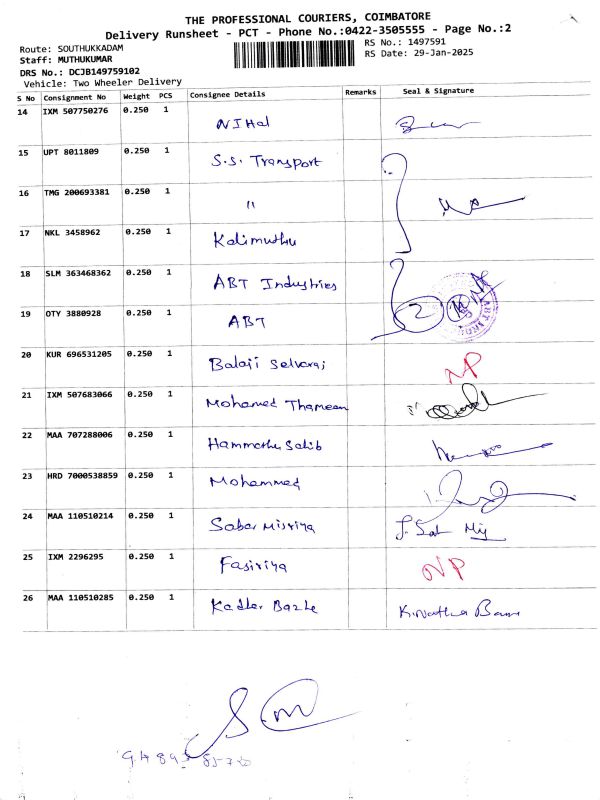 THE PROFESSIONAL COURIERS, COIMBATORE
Delivery Runsheet - PCT - Phone No.:0422-3505555 - Page No.:2
Route: SOUTHUKKADAM
RS No.: 1497591
Staff: MUTHUKUMAR
RS Date: 29-Jan-2025
DRS No.: DCJB149759102
Vehicle: Two Wheeler Delivery
S No Consignment No Weight PCS Consignee Details Remarks Seal & Signature
14 IXM 507750276 0.250 1 NIHal
15 UPT 8011809 0.250 1 S.S. Transport
16 TMG 200693381 0.250 1 "
17 NKL 3458962 0.250 1 Kalimuthu
18 SLM 363468362 0.250 1 ABT Industries
19 OTY 3880928 0.250 1 ABT 2
20 KUR 696531205 0.250 1 Balaji Selvaraj NP
21 IXM 507683066 0.250 1 Mohamed Thameem
22 MAA 707288006 0.250 1 Hammathu Sahib
23 HRD 7000538859 0.250 1 Mohammed
24 MAA 110510214 0.250 1 Sabar Misriya
25 IXM 2296295 0.250 1 Fasiriya NP
26 MAA 110510285 0.250 1 Kadher Bazhe